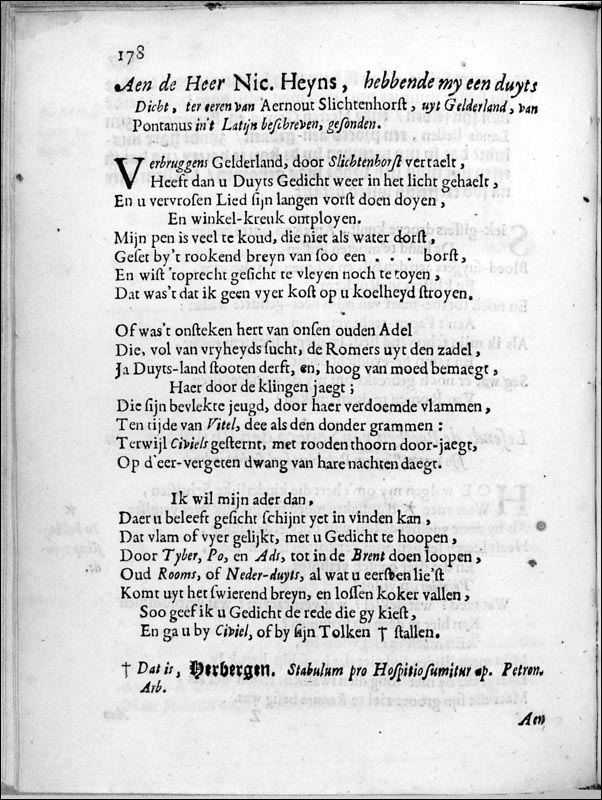 178
Aen de Heer Nic. Heyns, hebbende my een duyts
Dicht, ter eeren van Aernout Slichtenhorst, uyt Gelderland, van
Pontanus in't Latijn beschreven, gesonden.
Verbruggens Gelderland, door Slichtenhorst vertaelt,
Heeft dan u Duyts Gedicht weer in het licht gehaelt,
En u vervrosen Lied sijn langen vorst doen doyen,
En winkel-kreuk ontployen.
Mijn pen is veel te koud, die niet als water dorst,
Geset by't rookend breyn van soo een . . . borst,
En wist 'toprecht gesicht te vleyen noch te toyen,
Dat was't dat ik geen vyer kost op u koelheyd stroyen.
Of was't onsteken hert van onsen ouden Adel
Die, vol van vryheyds sucht, de Romers uyt den zadel,
Ja Duyts-land stooten derft, en, hoog van moed bemaegt,
Haer door de klingen jaegt;
Die sijn bevlekte jeugd, door haer verdoemde vlammen,
Ten tijde van Vitel, dee als den donder grammen:
Terwijl Civiels gesternt, met rooden thoorn door-jaegt,
Op d'eer-vergeten dwang van hare nachten daegt.
Ik wil mijn ader dan,
Daer u beleeft gesicht schijnt yet in vinden kan,
Dat vlam of vyer gelijkt, met u Gedicht te hoopen,
Door Tyber, Po, en Ads, tot in de Brent doen loopen,
Oud Rooms, of Neder-duyts, al wat u eersten lie'st
Komt uyt het swierend breyn, en lossen koker vallen,
Soo geef ik u Gedicht de rede die gy kiest,
En ga u by Civiel, of by sijn Tolken † stallen.
† Dat is, Herbergen. Stabulum pro Hospitio sumitur ap. Petron.
Arb.
Aen